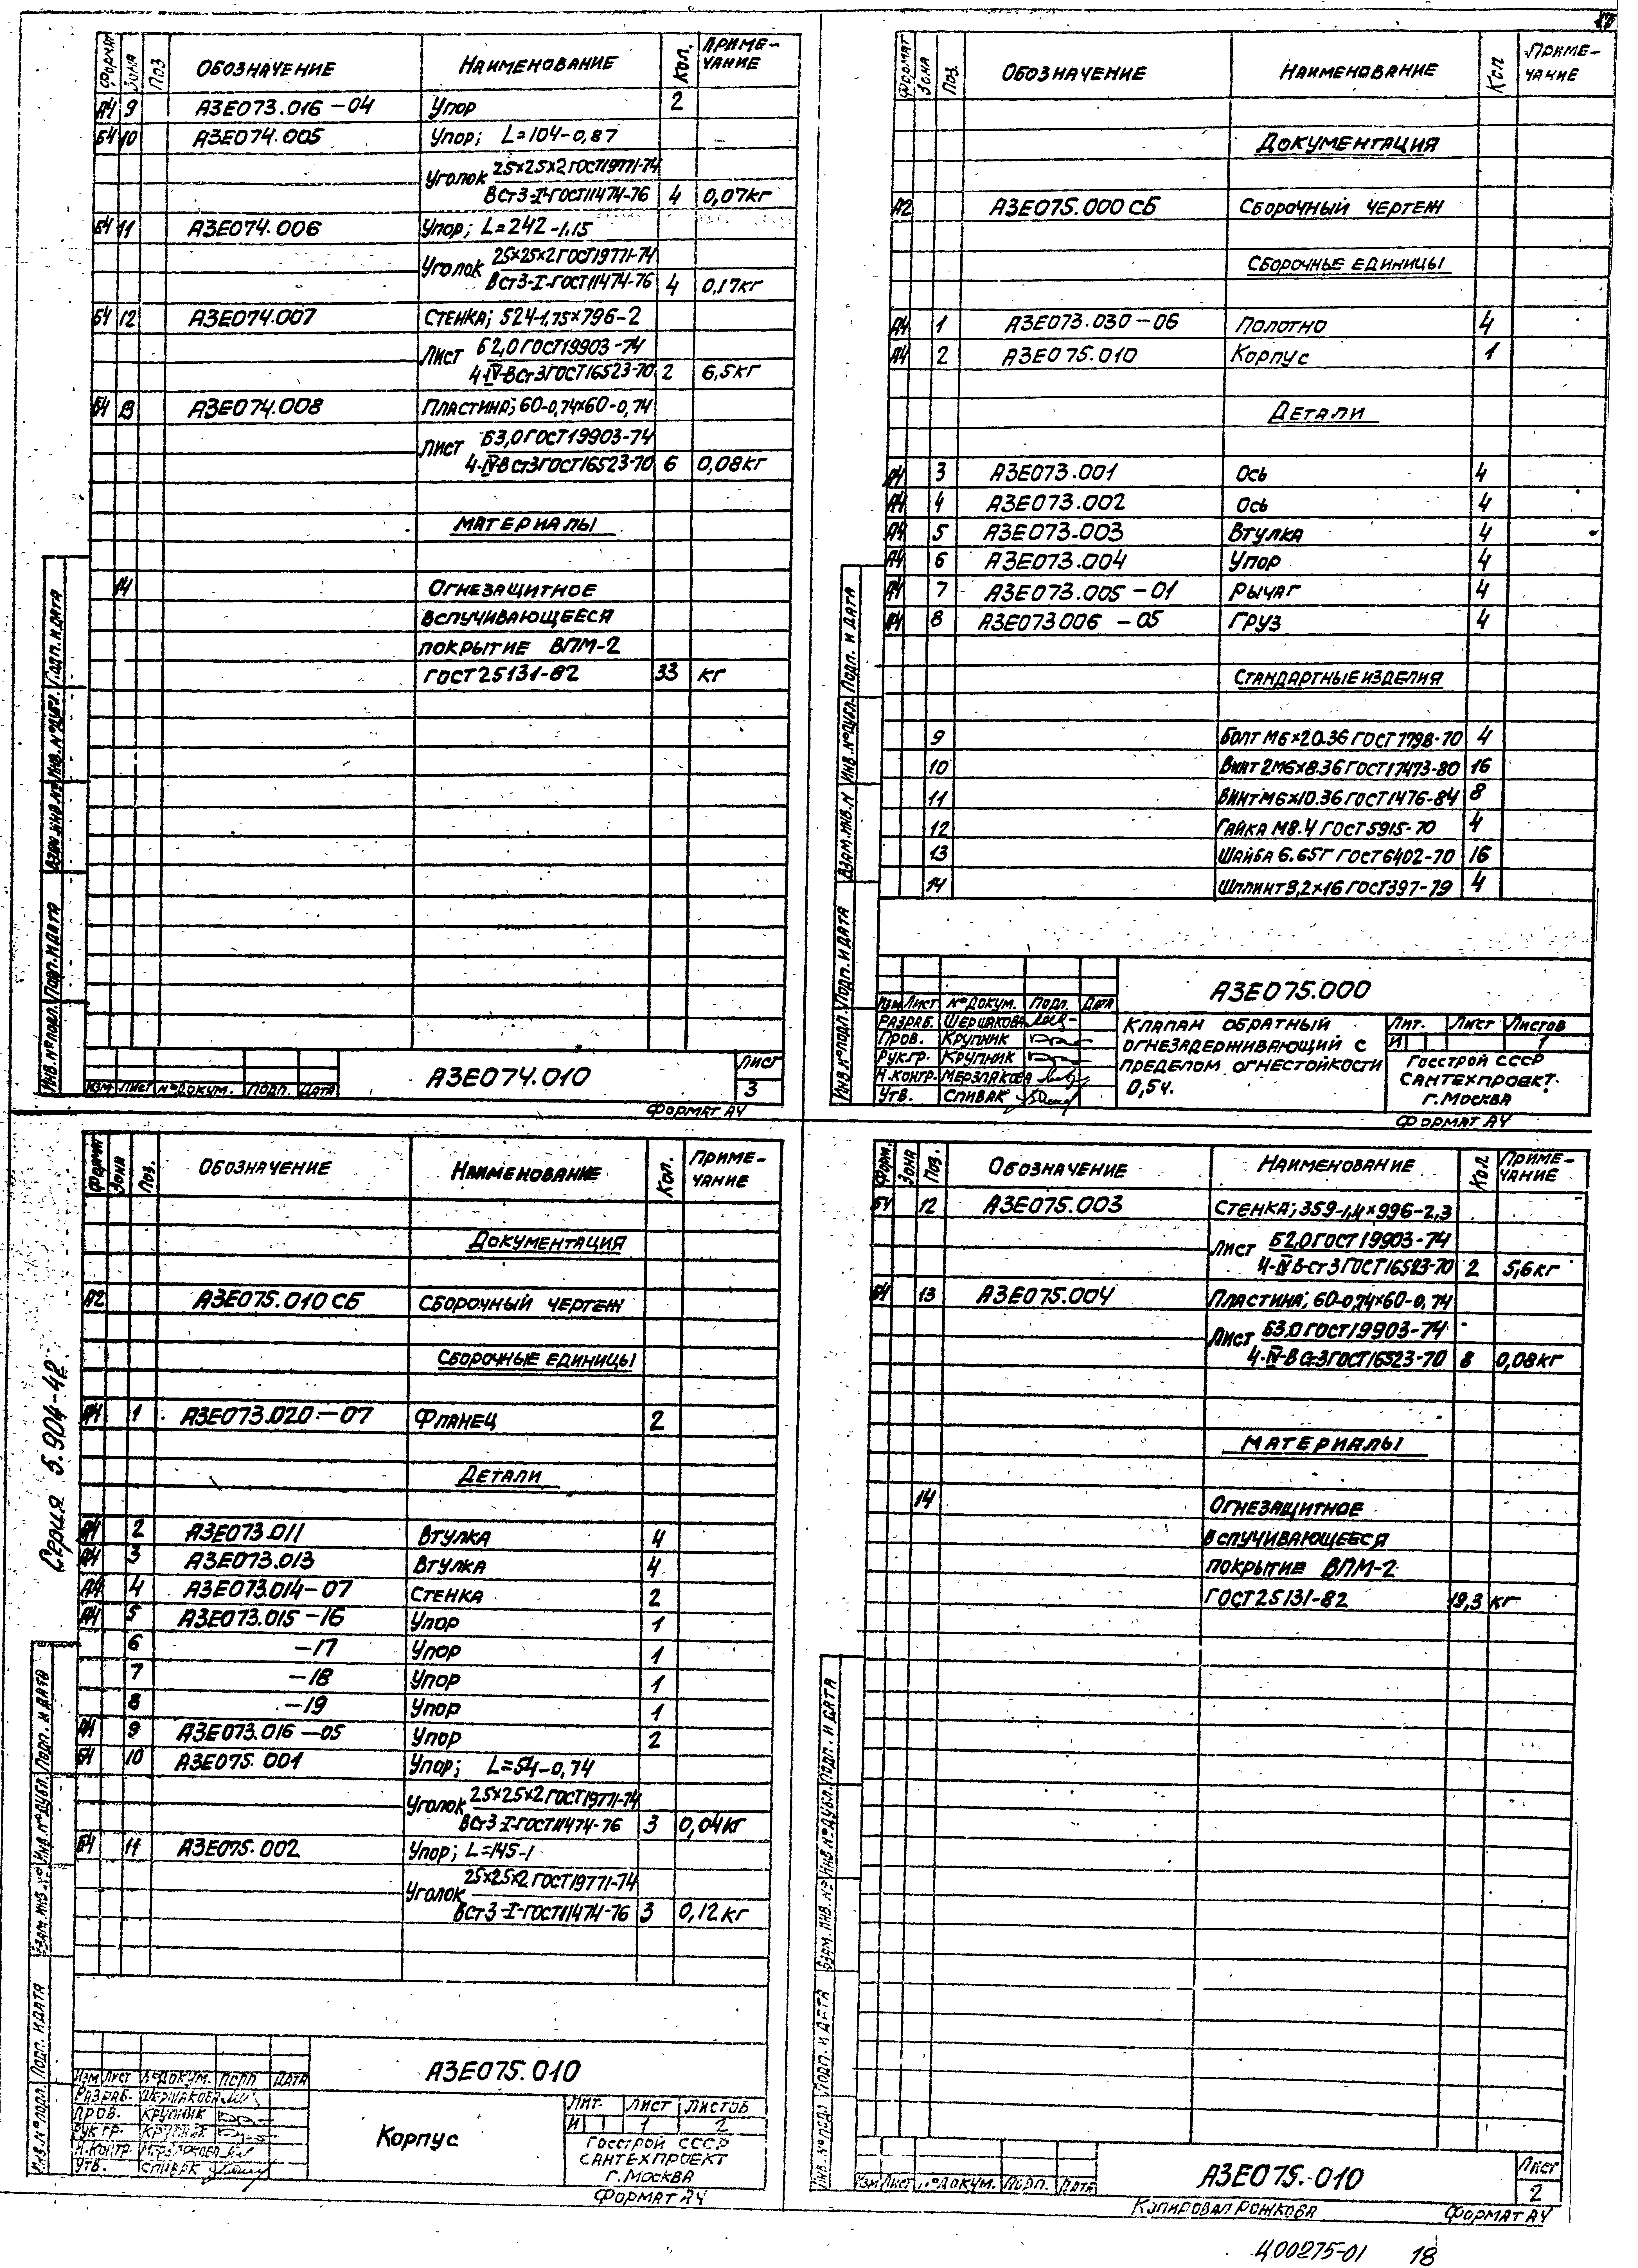 17
Формат Зона Поз Обозначение Наименование Кол. Приме-
чание
А4 9 А3Е073.016-04 Упор 2
Б4 10 А3Е074.005 Упор; L=104-0,87
Уголок 25×25×2 ГОСТ19771-74
ВСт3-I-ГОСТ11474-76 4 0,07кг
Б4 11 А3Е074.006 Упор; L=242-1,15
Уголок 25×25×2 ГОСТ19771-74
ВСт3-I-ГОСТ11474-76 4 0,17кг
Б4 12 А3Е074.007 Стенка; 524-1,75×796-2
Лист Б2,0 ГОСТ19903-74
4-IV-ВСт3 ГОСТ16523-70 2 6,5кг
Б4 13 А3Е074.008 Пластина; 60-0,74×60-0,74
Лист Б3,0 ГОСТ19903-74
4-IV-ВСт3 ГОСТ16523-70 6 0,08кг
Материалы
14 Огнезащитное
вспучивающееся
покрытие ВПМ-2
ГОСТ25131-82 33 кг
Инв.№подл. Подп. и дата Взам.инв.№ Инв.№дубл. Подп. и дата
Изм Лист №докум. Подп. Дата
А3Е074.010
Лист
3
Формат А4
Формат Зона Поз. Обозначение Наименование Кол. Приме-
чание
Документация
А2 А3Е075.000 СБ Сборочный чертеж
Сборочные единицы
А4 1 А3Е073.030-06 Полотно 4
А4 2 А3Е075.010 Корпус 1
Детали
А4 3 А3Е073.001 Ось 4
А4 4 А3Е073.002 Ось 4
А4 5 А3Е073.003 Втулка 4
А4 6 А3Е073.004 Упор 4
А4 7 А3Е073.005-01 Рычаг 4
А4 8 А3Е073006 -05 Груз 4
Стандартные изделия
9 Болт М6×20.36 ГОСТ7798-70 4
10 Винт 2М6×8.36 ГОСТ17473-80 16
11 Винт М6×10.36 ГОСТ1476-84 8
12 Гайка М8.4 ГОСТ5915-70 4
13 Шайба 6.65Г ГОСТ6402-70 16
14 Шплинт 3,2×16 ГОСТ397-79 4
Инв.№подл. Подп. и дата Взам.инв.№ Инв.№дубл. Подп. и дата
А3Е075.000
Изм Лист №докум. Подп. Дата
Разраб. Шершакова
Пров. Крупник
Рук.гр. Крупник
Н.контр. Мерзлакова
Утв. Спивак
Клапан обратный
огнезадерживающий с
пределом огнестойкости
0,5ч.
Лит. Лист Листов
И 1
Госстрой СССР
Сантехпроект
г.Москва
Формат А4
Формат Зона Поз. Обозначение Наименование Кол. Приме-
чание
Документация
А2 А3Е075.010 СБ Сборочный чертеж
Сборочные единицы
А4 1 А3Е073.020-07 Фланец 2
Детали
А4 2 А3Е073.011 Втулка 4
А4 3 А3Е073.013 Втулка 4
А4 4 А3Е073.014-07 Стенка 2
А4 5 А3Е073.015-16 Упор 1
6 -17 Упор 1
7 -18 Упор 1
8 -19 Упор 1
А4 9 А3Е073.016-05 Упор 2
Б4 10 А3Е075.001 Упор; L=54-0,74
Уголок 25×25×2 ГОСТ19771-74
ВСт3-I-ГОСТ11474-76 3 0,04кг
Б4 11 А3Е075.002 Упор; L=145-1
Уголок 25×25×2 ГОСТ19771-74
ВСт3-I-ГОСТ11474-76 3 0,12кг
Серия 5.904-42
Инв.№подл. Подп. и дата Взам.инв.№ Инв.№дубл. Подп. и дата
А3Е075.010
Изм Лист №докум. Подп. Дата
Разраб. Шершакова
Пров. Крупник
Рук.гр. Крупник
Н.контр. Мерзлакова
Утв. Спивак
Корпус
Лит. Лист Листов
И 1 2
Госстрой СССР
Сантехпроект
г.Москва
Формат А4
Форм. Зона Поз. Обозначение Наименование Кол. Приме-
чание
Б4 12 А3Е075.003 Стенка; 359-1,4×996-2,3
Лист Б2,0 ГОСТ19903-74
4-IV-ВСт3 ГОСТ16523-70 2 5,6кг
Б4 13 А3Е075.004 Пластина; 60-0,74×60-0,74
Лист Б3,0 ГОСТ19903-74
4-IV-ВСт3 ГОСТ16523-70 8 0,08кг
Материалы
14 Огнезащитное
вспучивающееся
покрытие ВПМ-2
ГОСТ25131-82 19,3 кг
Инв.№подл. Подп. и дата Взам.инв.№ Инв.№дубл. Подп. и дата
Изм Лист №докум. Подп. Дата
А3Е075.010
Лист
2
Копировал Рожкова Формат А4
400275-01 18